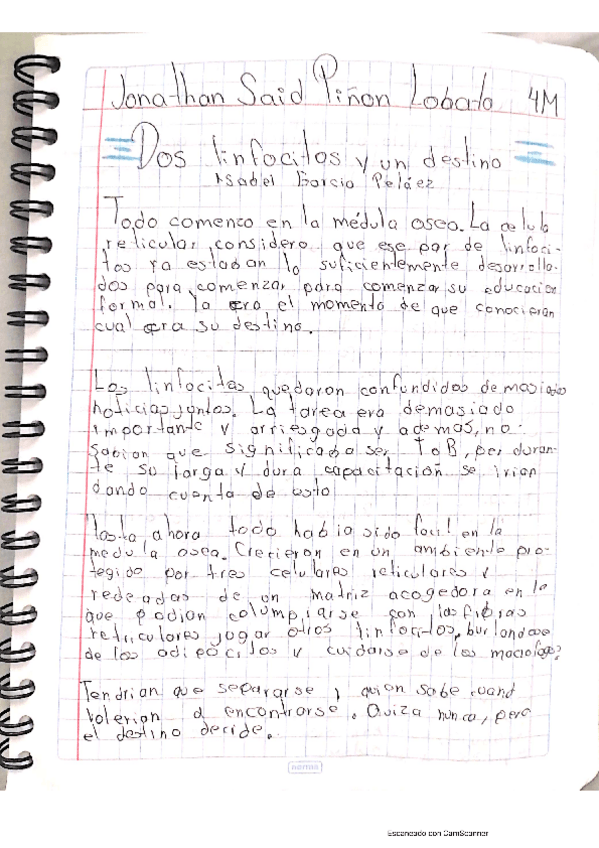 Jonathan Said Piñon Lobato 4M
Dos linfocitos y un destino
Isabel Garcia Peláez
Todo comenzo en la médula osea. La celula
reticular, considero que ese par de linfoci-
tos ya estaban lo suficientemente desarrolla-
dos para comenzar para comenzar su educacion
formal. Ya era el momento de que conocieran
cual era su destino.
Los linfocitos quedaron confundidos demasiadas
noticias juntas. La tarea era demasiado
importante y arriesgada y ademas, no
sabian que significaba ser T o B, per duran-
te su larga y dura capacitacion se irian
dando cuenta de esto
Hasta ahora todo habia sido facil en la
medula osea. Crecieron en un ambiente pro-
tegido por tres celulares reticulares y
rodeadas de un matriz acogedora en la
que podian columpiarse con las fibras
reticulores jugar otros linfocitos, burlandose
de los adipocitos y cuidarse de los macrofagos
Tendrian que separarse y quien sabe cuand
volverian a encontrarse. Quiza nunca, pero
el destino decide.
norma
Escaneado con CamScanner